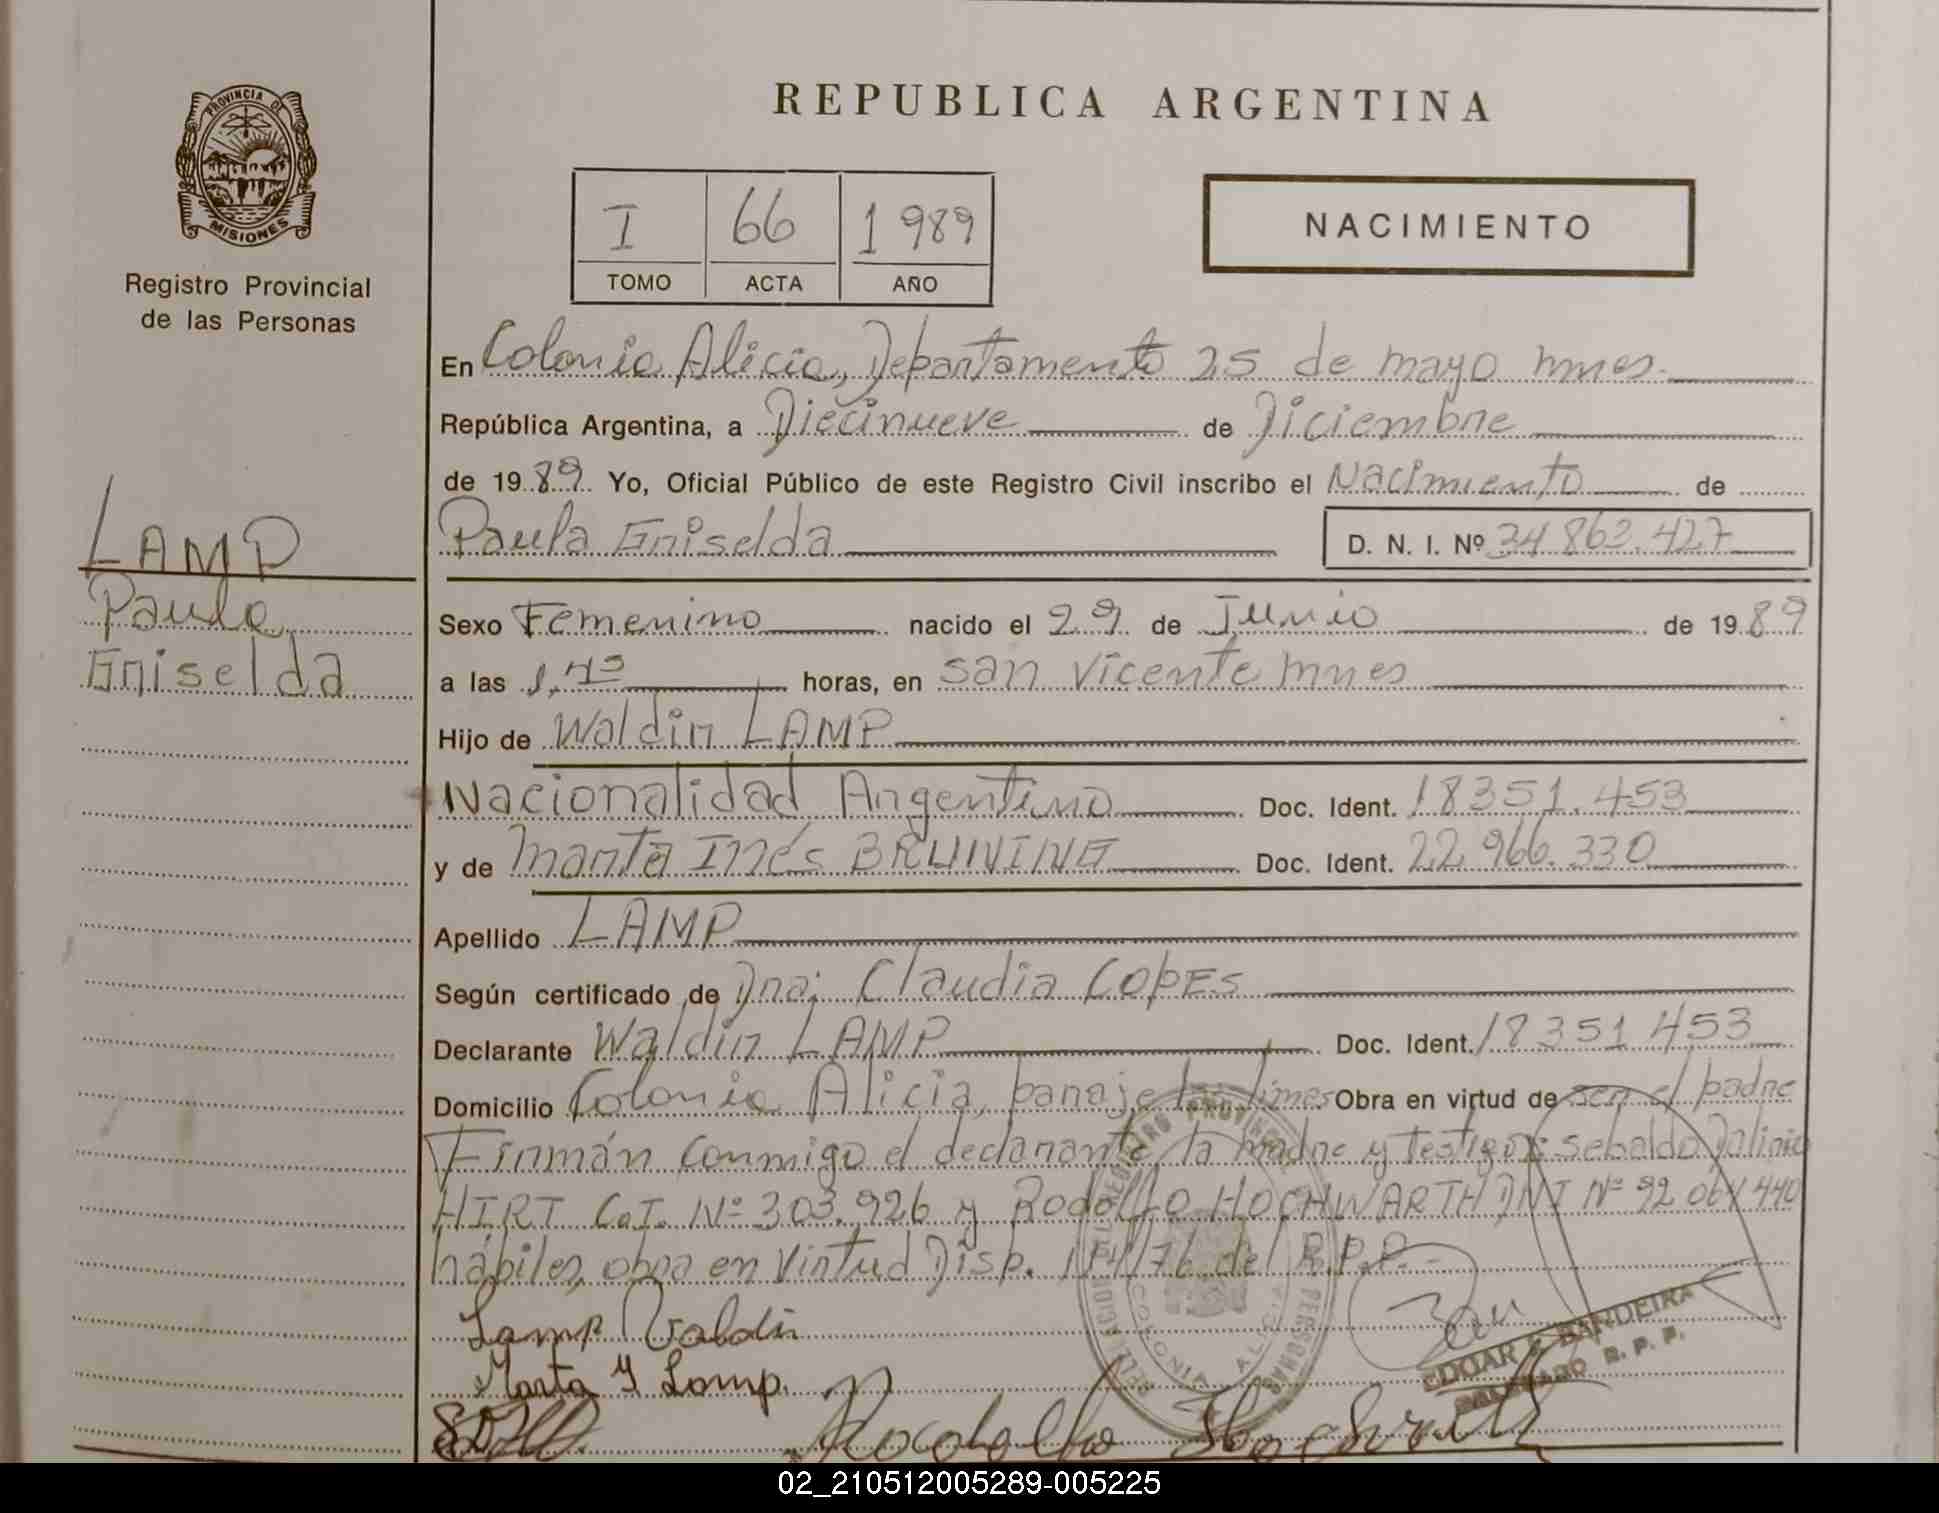 PROVINCIA DE
MISIONES
Registro Provincial
de las Personas
LAMP
Paula
Griselda
REPUBLICA ARGENTINA
I 66 1989
TOMO ACTA AÑO
NACIMIENTO
En Colonia Alicia, Departamento 25 de mayo mnes.
República Argentina, a Diecinueve de Diciembre
de 1989 Yo, Oficial Público de este Registro Civil inscribo el Nacimiento de
Paula Griselda D. N. I. Nº 34 863.427
Sexo Femenino nacido el 29 de Junio de 1989
a las horas, en san vicente mnes
Hijo de Waldin LAMP
Nacionalidad Argentino Doc. Ident. 18351.453
y de Marta Inés BRUNING Doc. Ident. 22.966.330
Apellido LAMP
Según certificado de Dra; Claudia COPES
Declarante Waldin LAMP Doc. Ident. 18351 453
Domicilio Colonia Alicia, paraje Obra en virtud de ser el padre
Firmán conmigo el declarante la madre y testigos sebaldo
HIRT C.I. Nº 303.926 y Rodolfo HOCHWARTH DNI Nº 92 064 440
hábiles, obra en virtud Disp. 114/76 del R.P.P.-
Lamp Valdin
Marta Y Lamp.
COLONIA ALICIA
EDGAR BANDEIRA
R. P. P.
Rodolfo
02_210512005289-005225